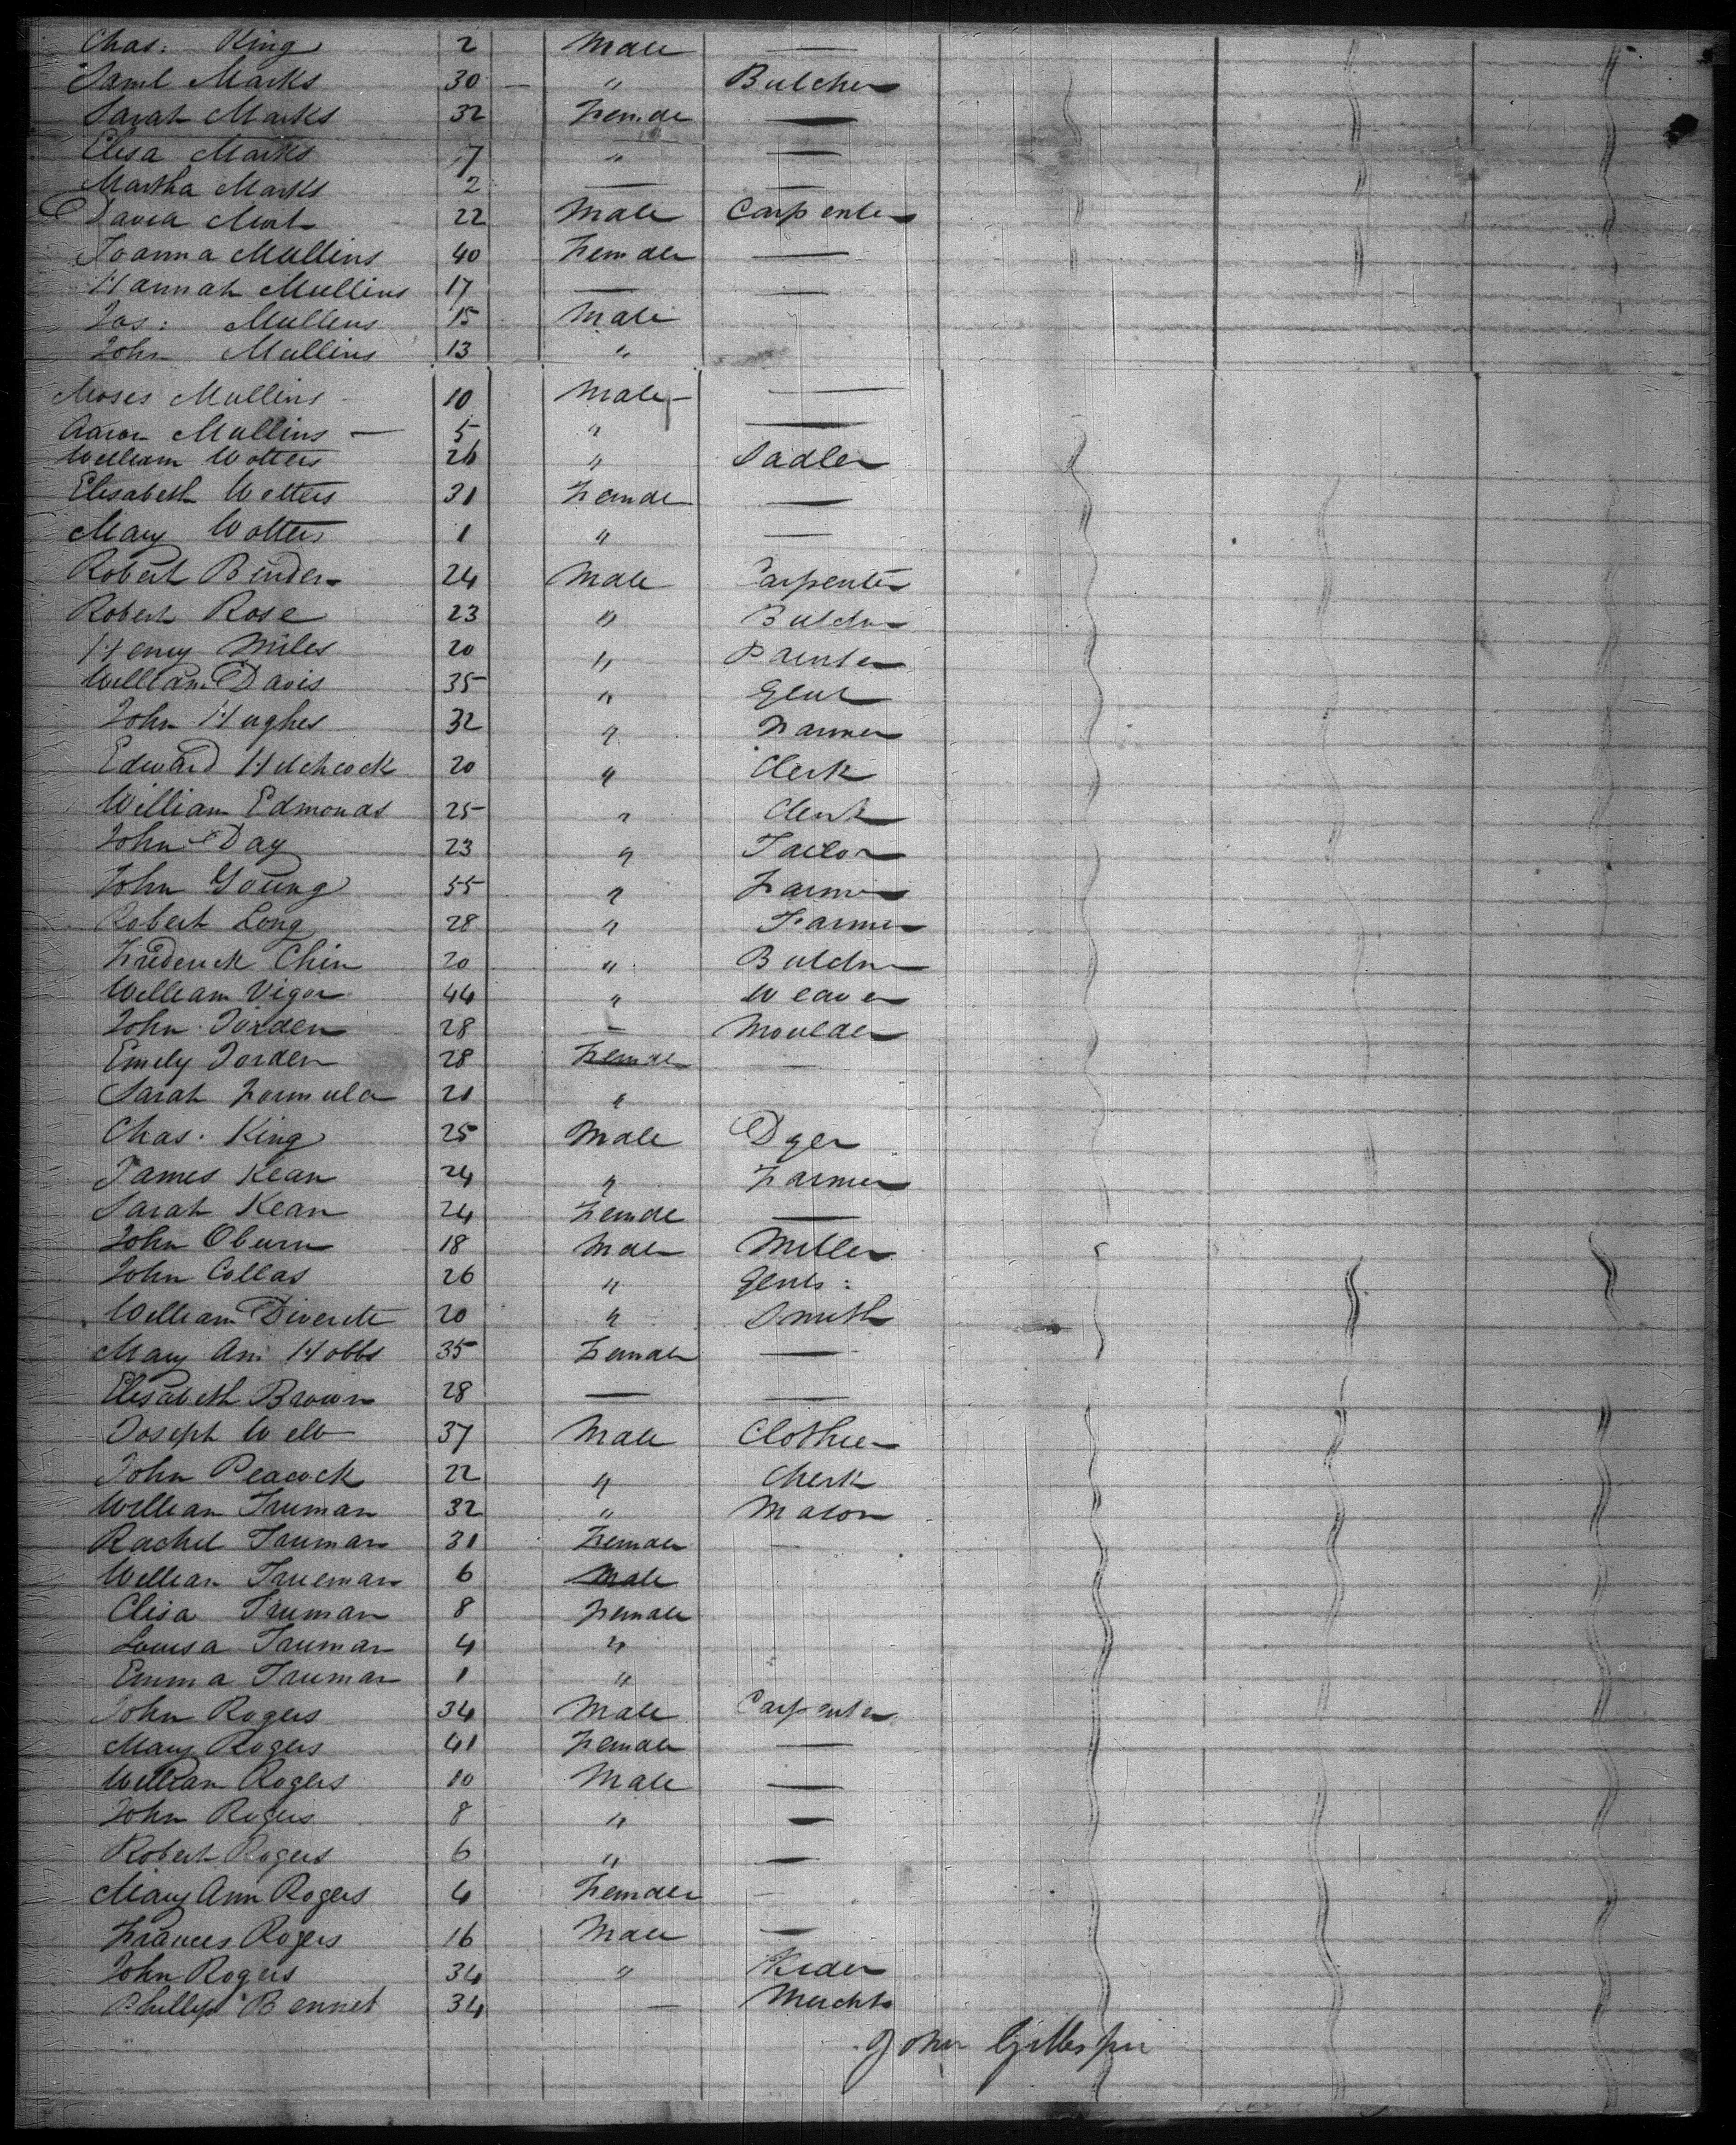 Chas: King 2 Male —
Saml Marks 30 — " Butcher
Sarah Marks 32 Female —
Elisa Marks 7 " —
Martha Marks 2 — —
David 22 Male Carpenter
Joanna Mullins 40 Female —
Hannah Mullins 17 — —
Jas: Mullins 15 Male
John Mullins 13 "
Moses Mullins 10 Male —
Aaron Mullins — 5 " —
William Wolters 26 " Sadler
Elisabeth Wolters 31 Female —
Mary Wolters 1 " —
Robert Binden 24 Male Carpenter
Robert Rose 23 " Butcher
Henry Miles 20 " Painter
William Davis 35 " Gent
John Hughes 32 " Farmer
Edward Hitchcock 20 " Clerk
William Edmonds 25 " Clerk
John Day 23 " Tailor
John Young 55 " Farmer
Robert Long 28 " Farmer
Frederick Chin 20 " Butcher
William Vigor 44 " Weaver
John Jorden 28 — Moulder
Emily Jorden 28 Female —
Sarah Formula 21 "
Chas. King 25 Male Dyer
James Kean 24 " Farmer
Sarah Kean 24 Female —
John Oburn 18 Male Miller
John Collas 26 " Gents:
William 20 " Smith
Mary Ann Hobbs 35 Female —
Elisabeth Brown 28 — —
Joseph Webb 37 Male Clothier
John Peacock 22 " Clerk
William Truman 32 " Mason
Rachel Truman 31 Female —
William Trueman 6 Male
Elisa Truman 8 Female
Louisa Truman 4 "
Emma Truman 1 "
John Rogers 34 Male Carpenter
Mary Rogers 41 Female —
William Rogers 10 Male —
John Rogers 8 " —
Robert Rogers 6 " —
Mary Ann Rogers 4 Female —
Frances Rogers 16 Male —
John Rogers 34 "
Phillip Bennet 34 — Mercht
John Gillespie